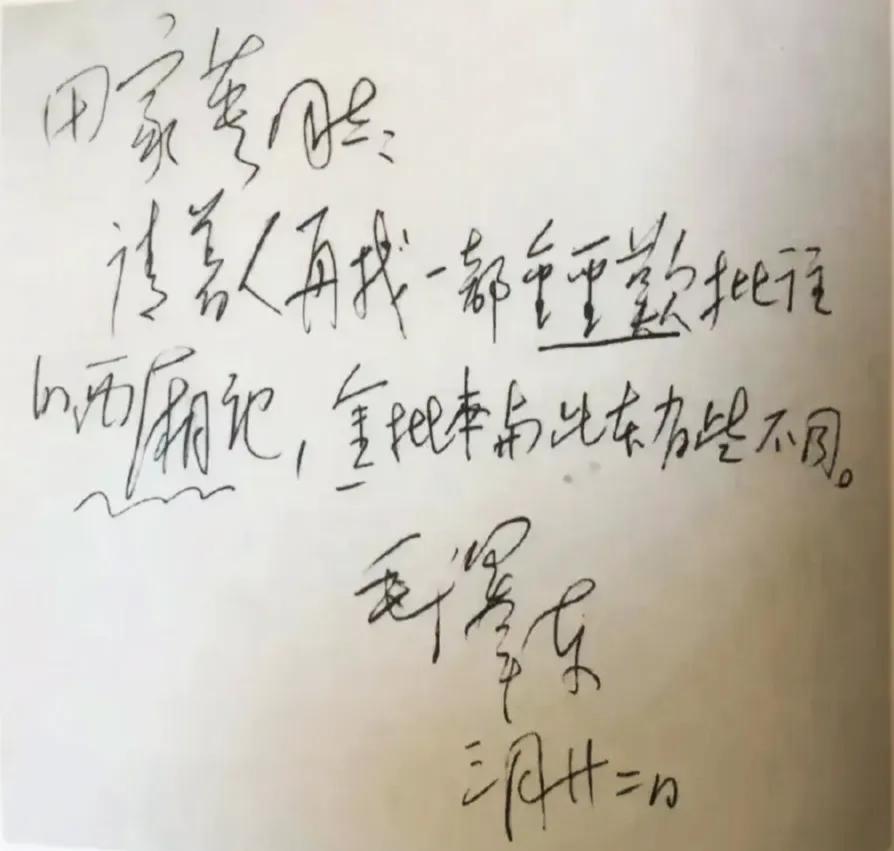 田家英同志:
请着人再找一部金圣叹批注
的西厢记，金批本与此本有些不同。
毛泽东
三月廿二日